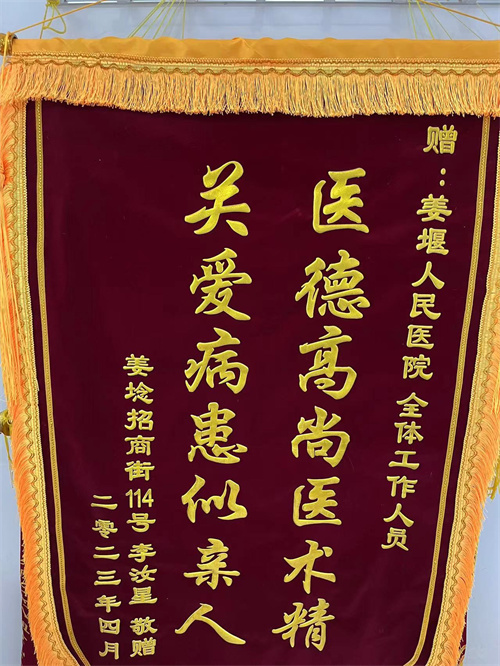 赠：姜堰人民医院 全体工作人员
医德高尚医术精
关爱病患似亲人
姜埝招商街114号 李汝星 敬赠
二零二三年四月